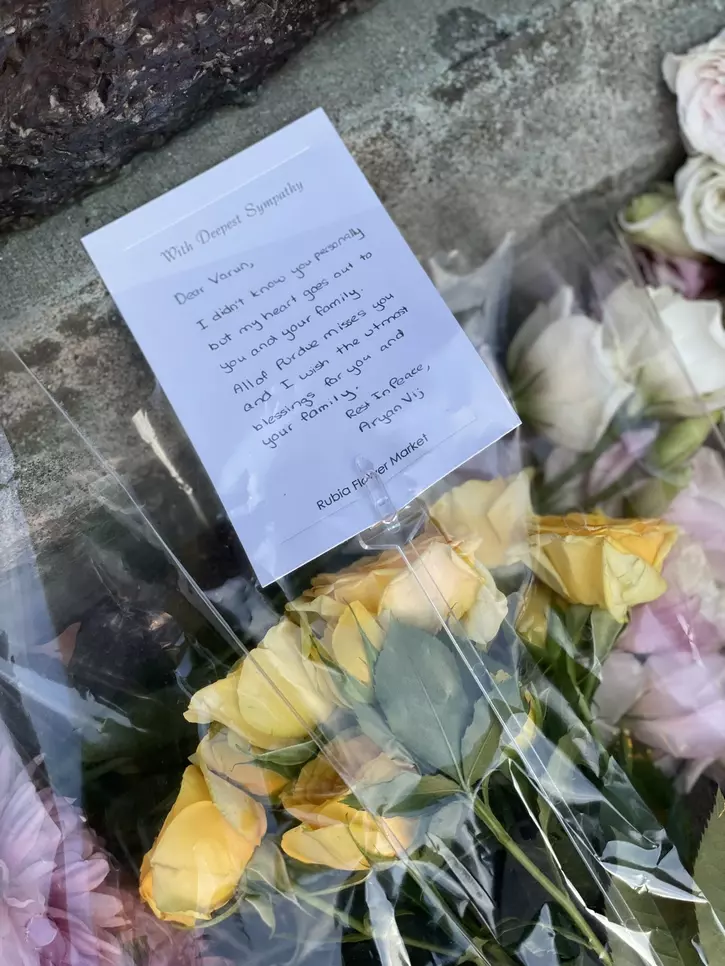 With Deepest Sympathy
Dear Varun,
I didn't know you personally
but my heart goes out to
you and your family.
All of Purdue misses you
and I wish the utmost
blessings for you and
your family.
Rest In Peace,
Aryan Vij
Rubia Flower Market